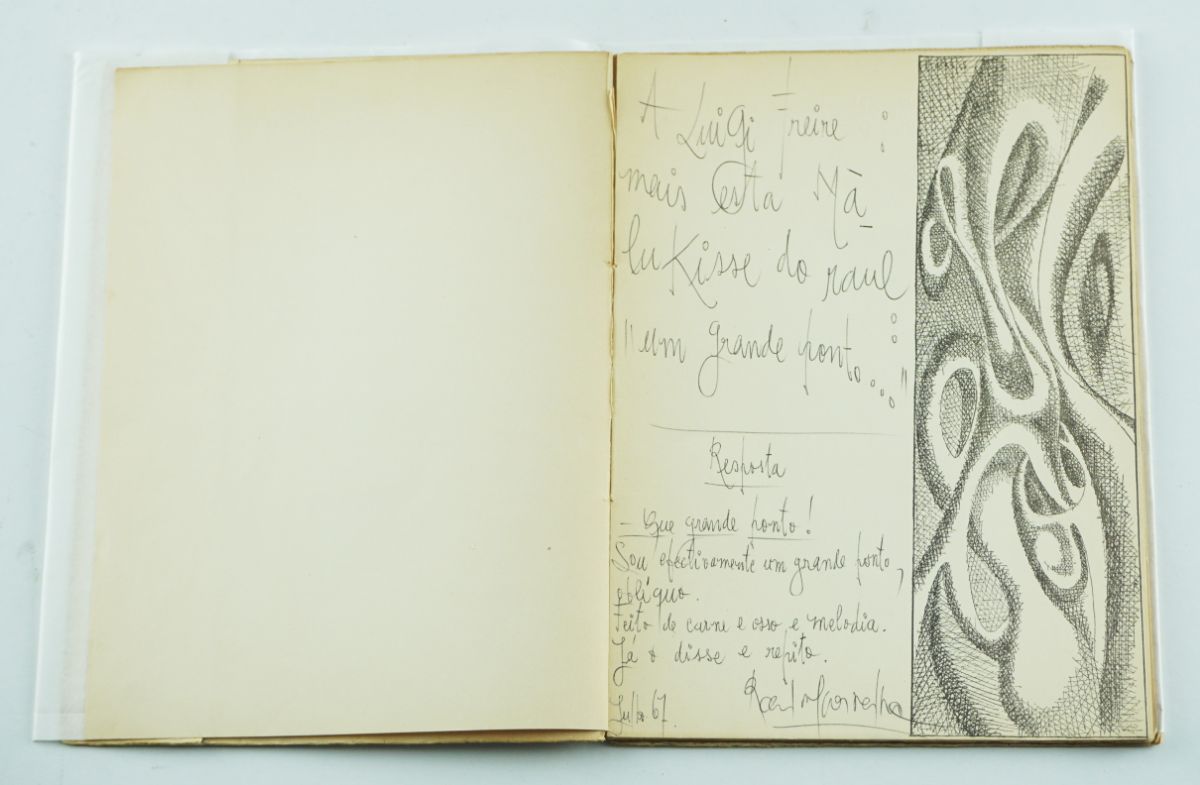 A Luigi Freire :
mais esta Mà-
luKisse do raul
"um grande ponto..."
Resposta
– Que grande ponto!
Sou efectivamente um grande ponto,
oblíquo.
Feito de carne e osso e melodia.
Já o disse e repito.
Raul de Carvalho
Julho 67.